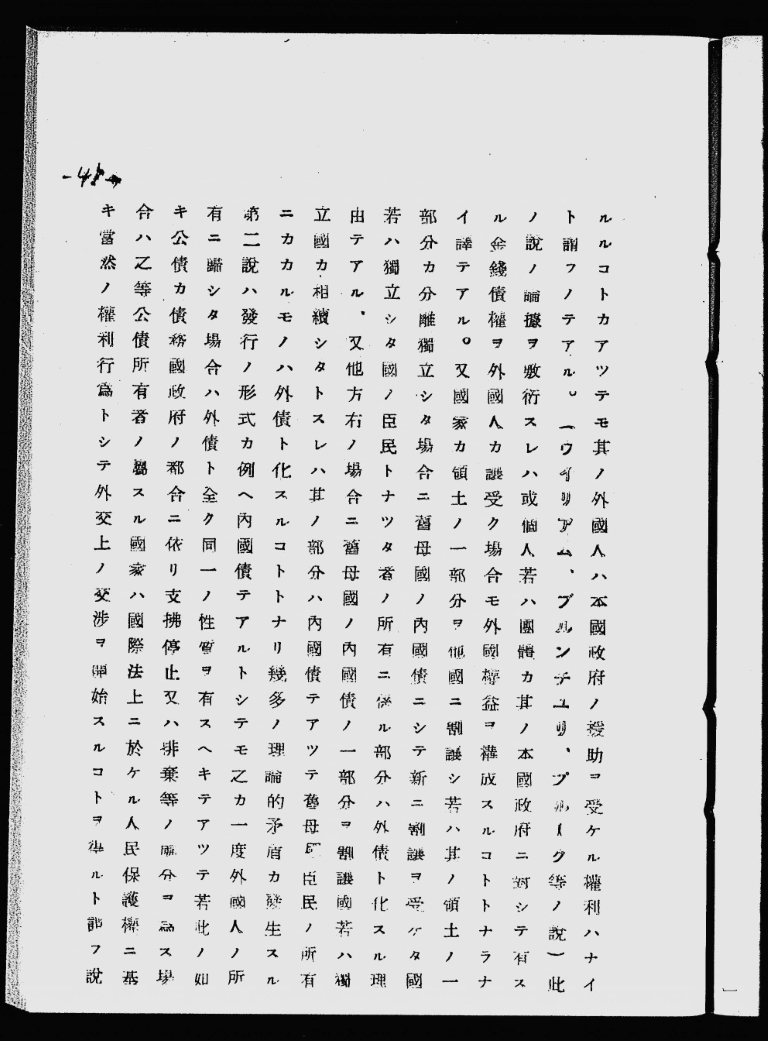 -48-
ルルコトカアツテモ其ノ外國人ハ本國政府ノ援助ヲ受ケル權利ハナイ
ト謂フノテアル。(ウイリアム、ブルンチユリ、ブルーグ等ノ說)此
ノ說ノ論據ヲ敷衍スレハ或個人若ハ團體カ其ノ本國政府ニ對シテ有ス
ル金錢債權ヲ外國人カ讓受ク場合モ外國權益ヲ構成スルコトトナラナ
イ譯テアル。又國家カ領土ノ一部分ヲ他國ニ割讓シ若ハ其ノ領土ノ一
部分カ分離獨立シタ場合ニ舊母國ノ內國債ニシテ新ニ割讓ヲ受ケタ國
若ハ獨立シタ國ノ臣民トナツタ者ノ所有ニ係ル部分ハ外債ト化スル理
由テアル、又他方右ノ場合ニ舊母國ノ內國債ノ一部分ヲ割讓國若ハ獨
立國カ相續シタトスレハ其ノ部分ハ內國債テアツテ舊母國臣民ノ所有
ニカカルモノハ外債ト化スルコトトナリ幾多ノ理論的矛盾カ發生スル
第二說ハ發行ノ形式カ例ヘ內國債テアルトシテモ之カ一度外國人ノ所
有ニ歸シタ場合ハ外債ト全ク同一ノ性質ヲ有スヘキテアツテ若此ノ如
キ公債カ債務國政府ノ都合ニ依リ支拂停止又ハ排棄等ノ處分ヲ爲ス場
合ハ之等公債所有者ノ屬スル國家ハ國際法上ニ於ケル人民保護權ニ基
キ當然ノ權利行爲トシテ外交上ノ交涉ヲ開始スルコトヲ得ルト謂フ說